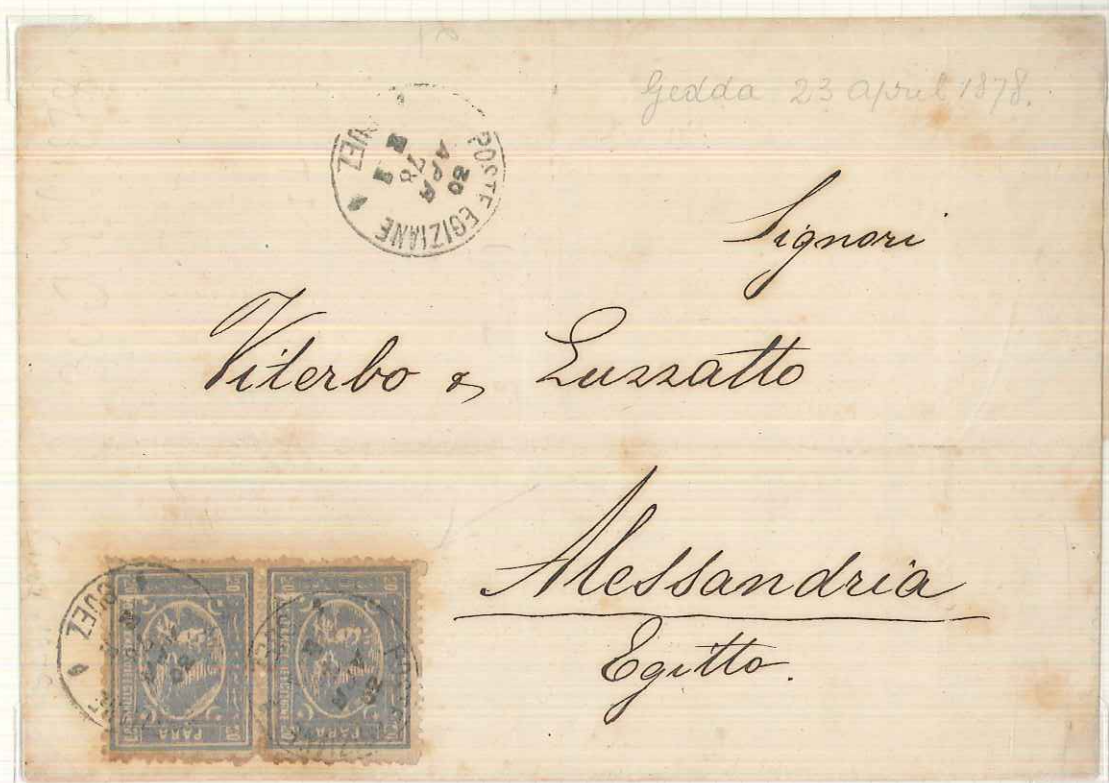 Gedda 23 april 1878.
POSTE EGIZIANE
SUEZ
30
APR
78
Signori
Viterbo & Luzzatto
Alessandria
Egitto.
SUEZ
PARA
PARA